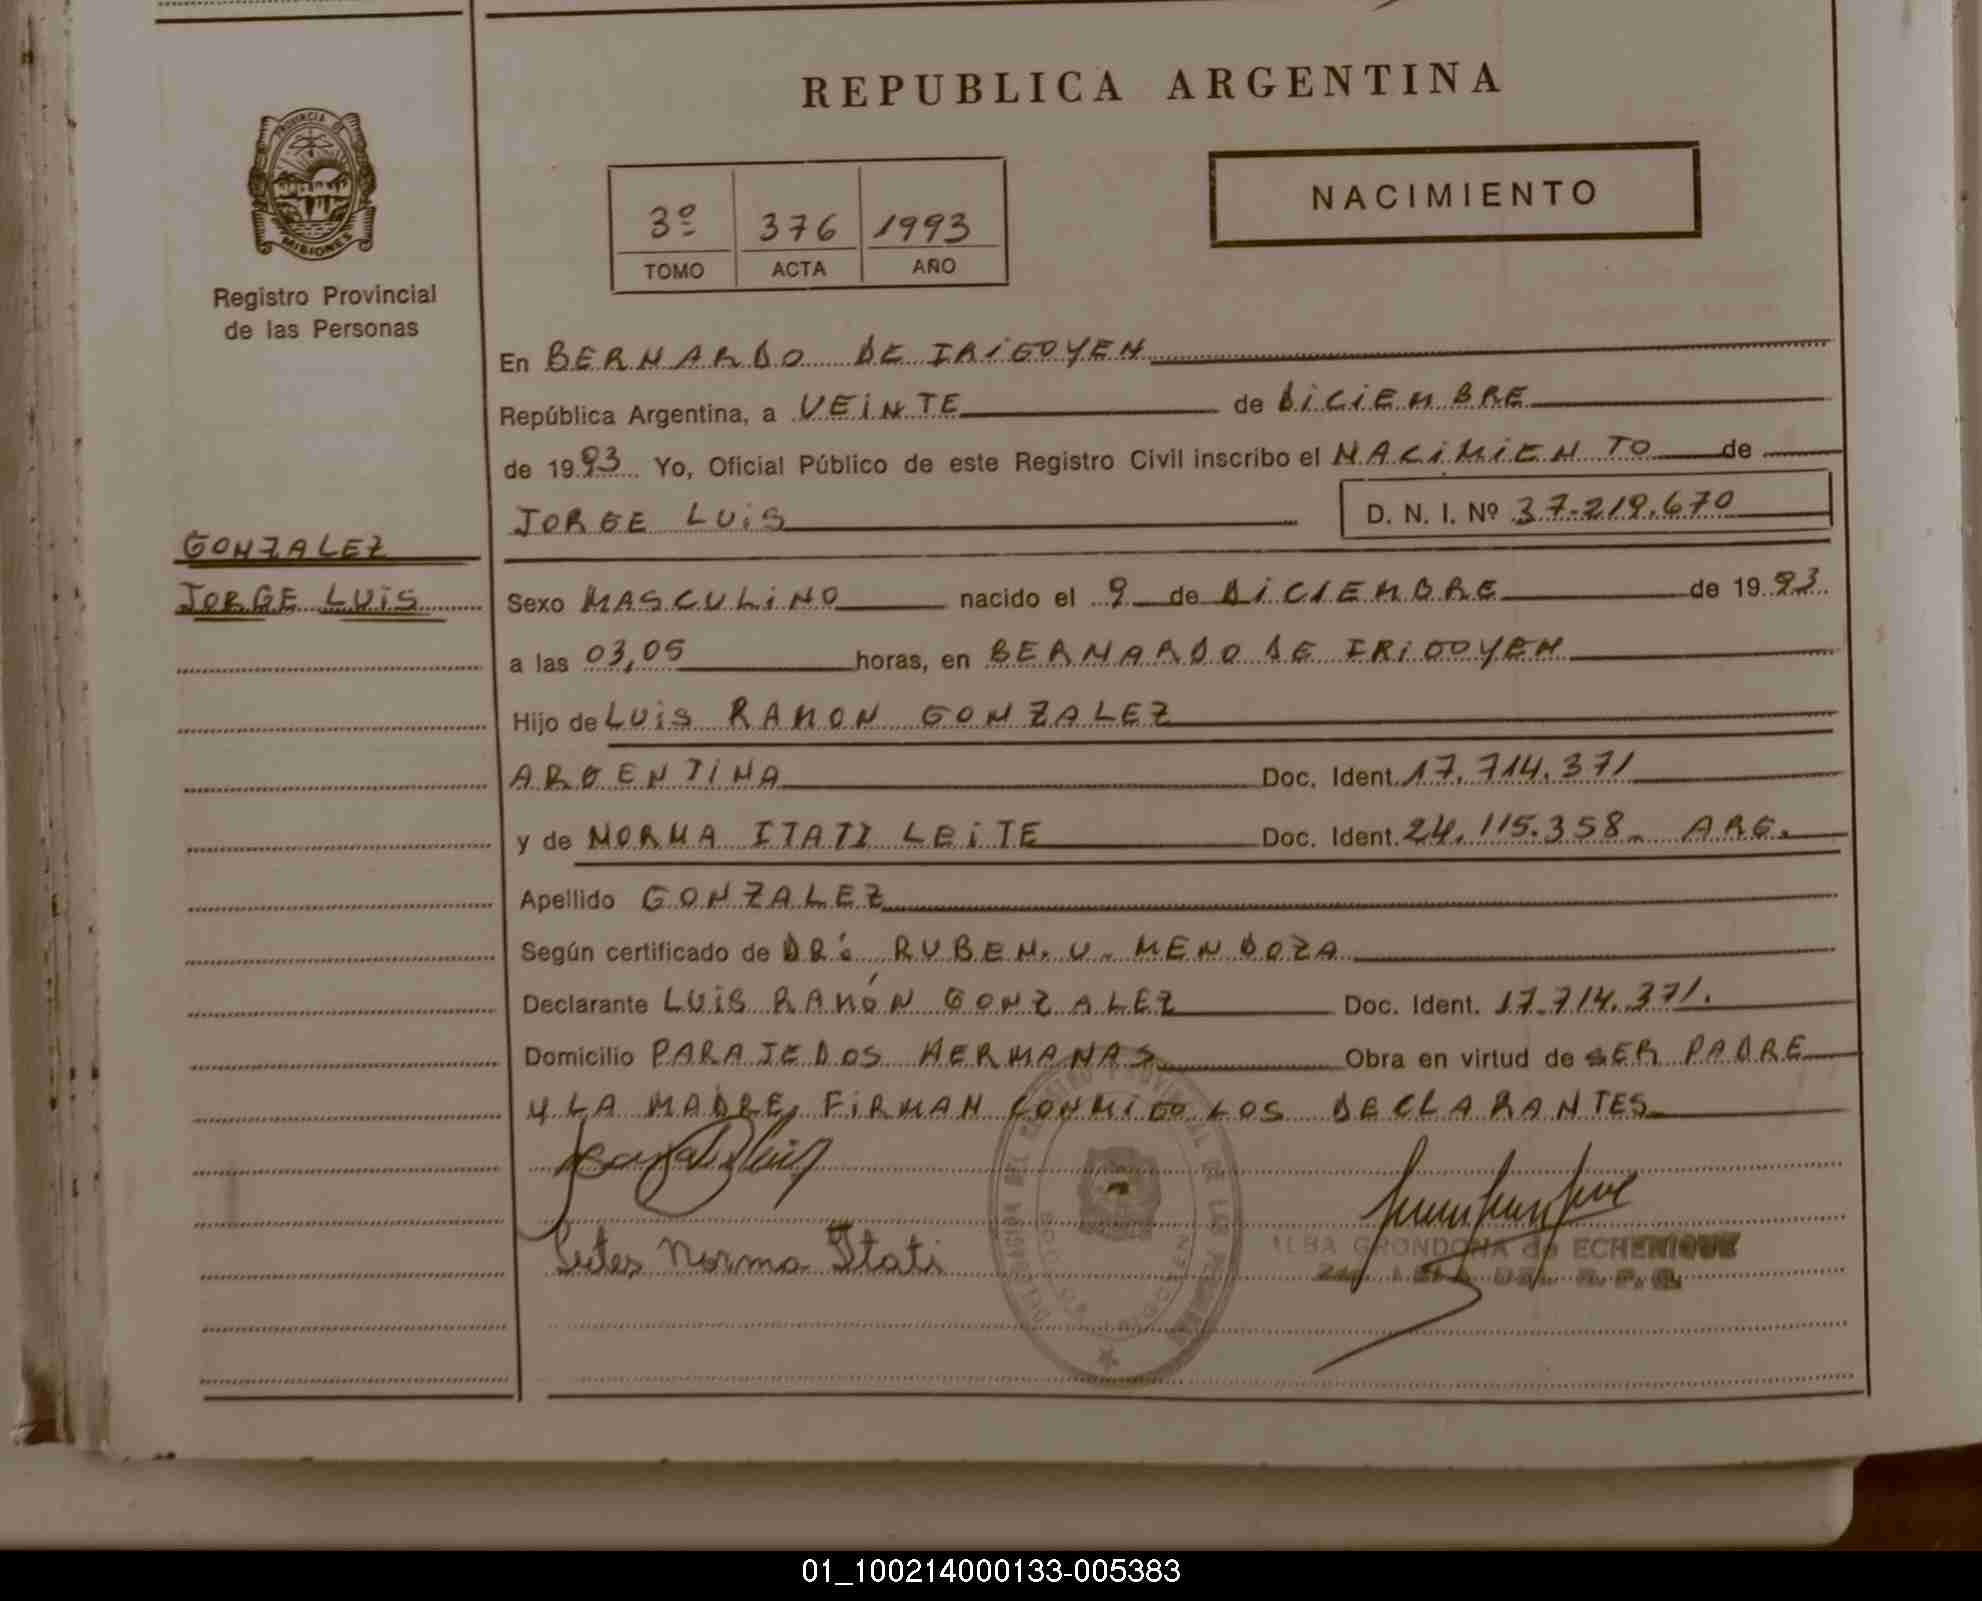 REPUBLICA ARGENTINA
PROVINCIA DE
MISIONES
Registro Provincial
de las Personas
NACIMIENTO
3º 376 1993
TOMO ACTA AÑO
En BERNARDO DE IRIGOYEN
República Argentina, a VEINTE de DICIEMBRE
de 1993 Yo, Oficial Público de este Registro Civil inscribo el NACIMIENTO de
JORGE LUIS D. N. I. Nº 37.219.670
GONZALEZ
JORGE LUIS
Sexo MASCULINO nacido el 9 de DICIEMBRE de 1993
a las 03,05 horas, en BERNARDO DE IRIGOYEN
Hijo de LUIS RAMON GONZALEZ
ARGENTINA Doc. Ident. 17.714.371
y de NORMA ITATI LEITE Doc. Ident. 24.115.358. ARG.
Apellido GONZALEZ
Según certificado de DR: RUBEN. U. MENDOZA
Declarante LUIS RAMÓN GONZALEZ Doc. Ident. 17.714.371.
Domicilio PARAJE DOS HERMANAS Obra en virtud de SER PADRE
Y LA MADRE, FIRMAN CONMIGO LOS DECLARANTES
Norma Itati
ALBA GRONDONA de ECHENIQUE
01_100214000133-005383